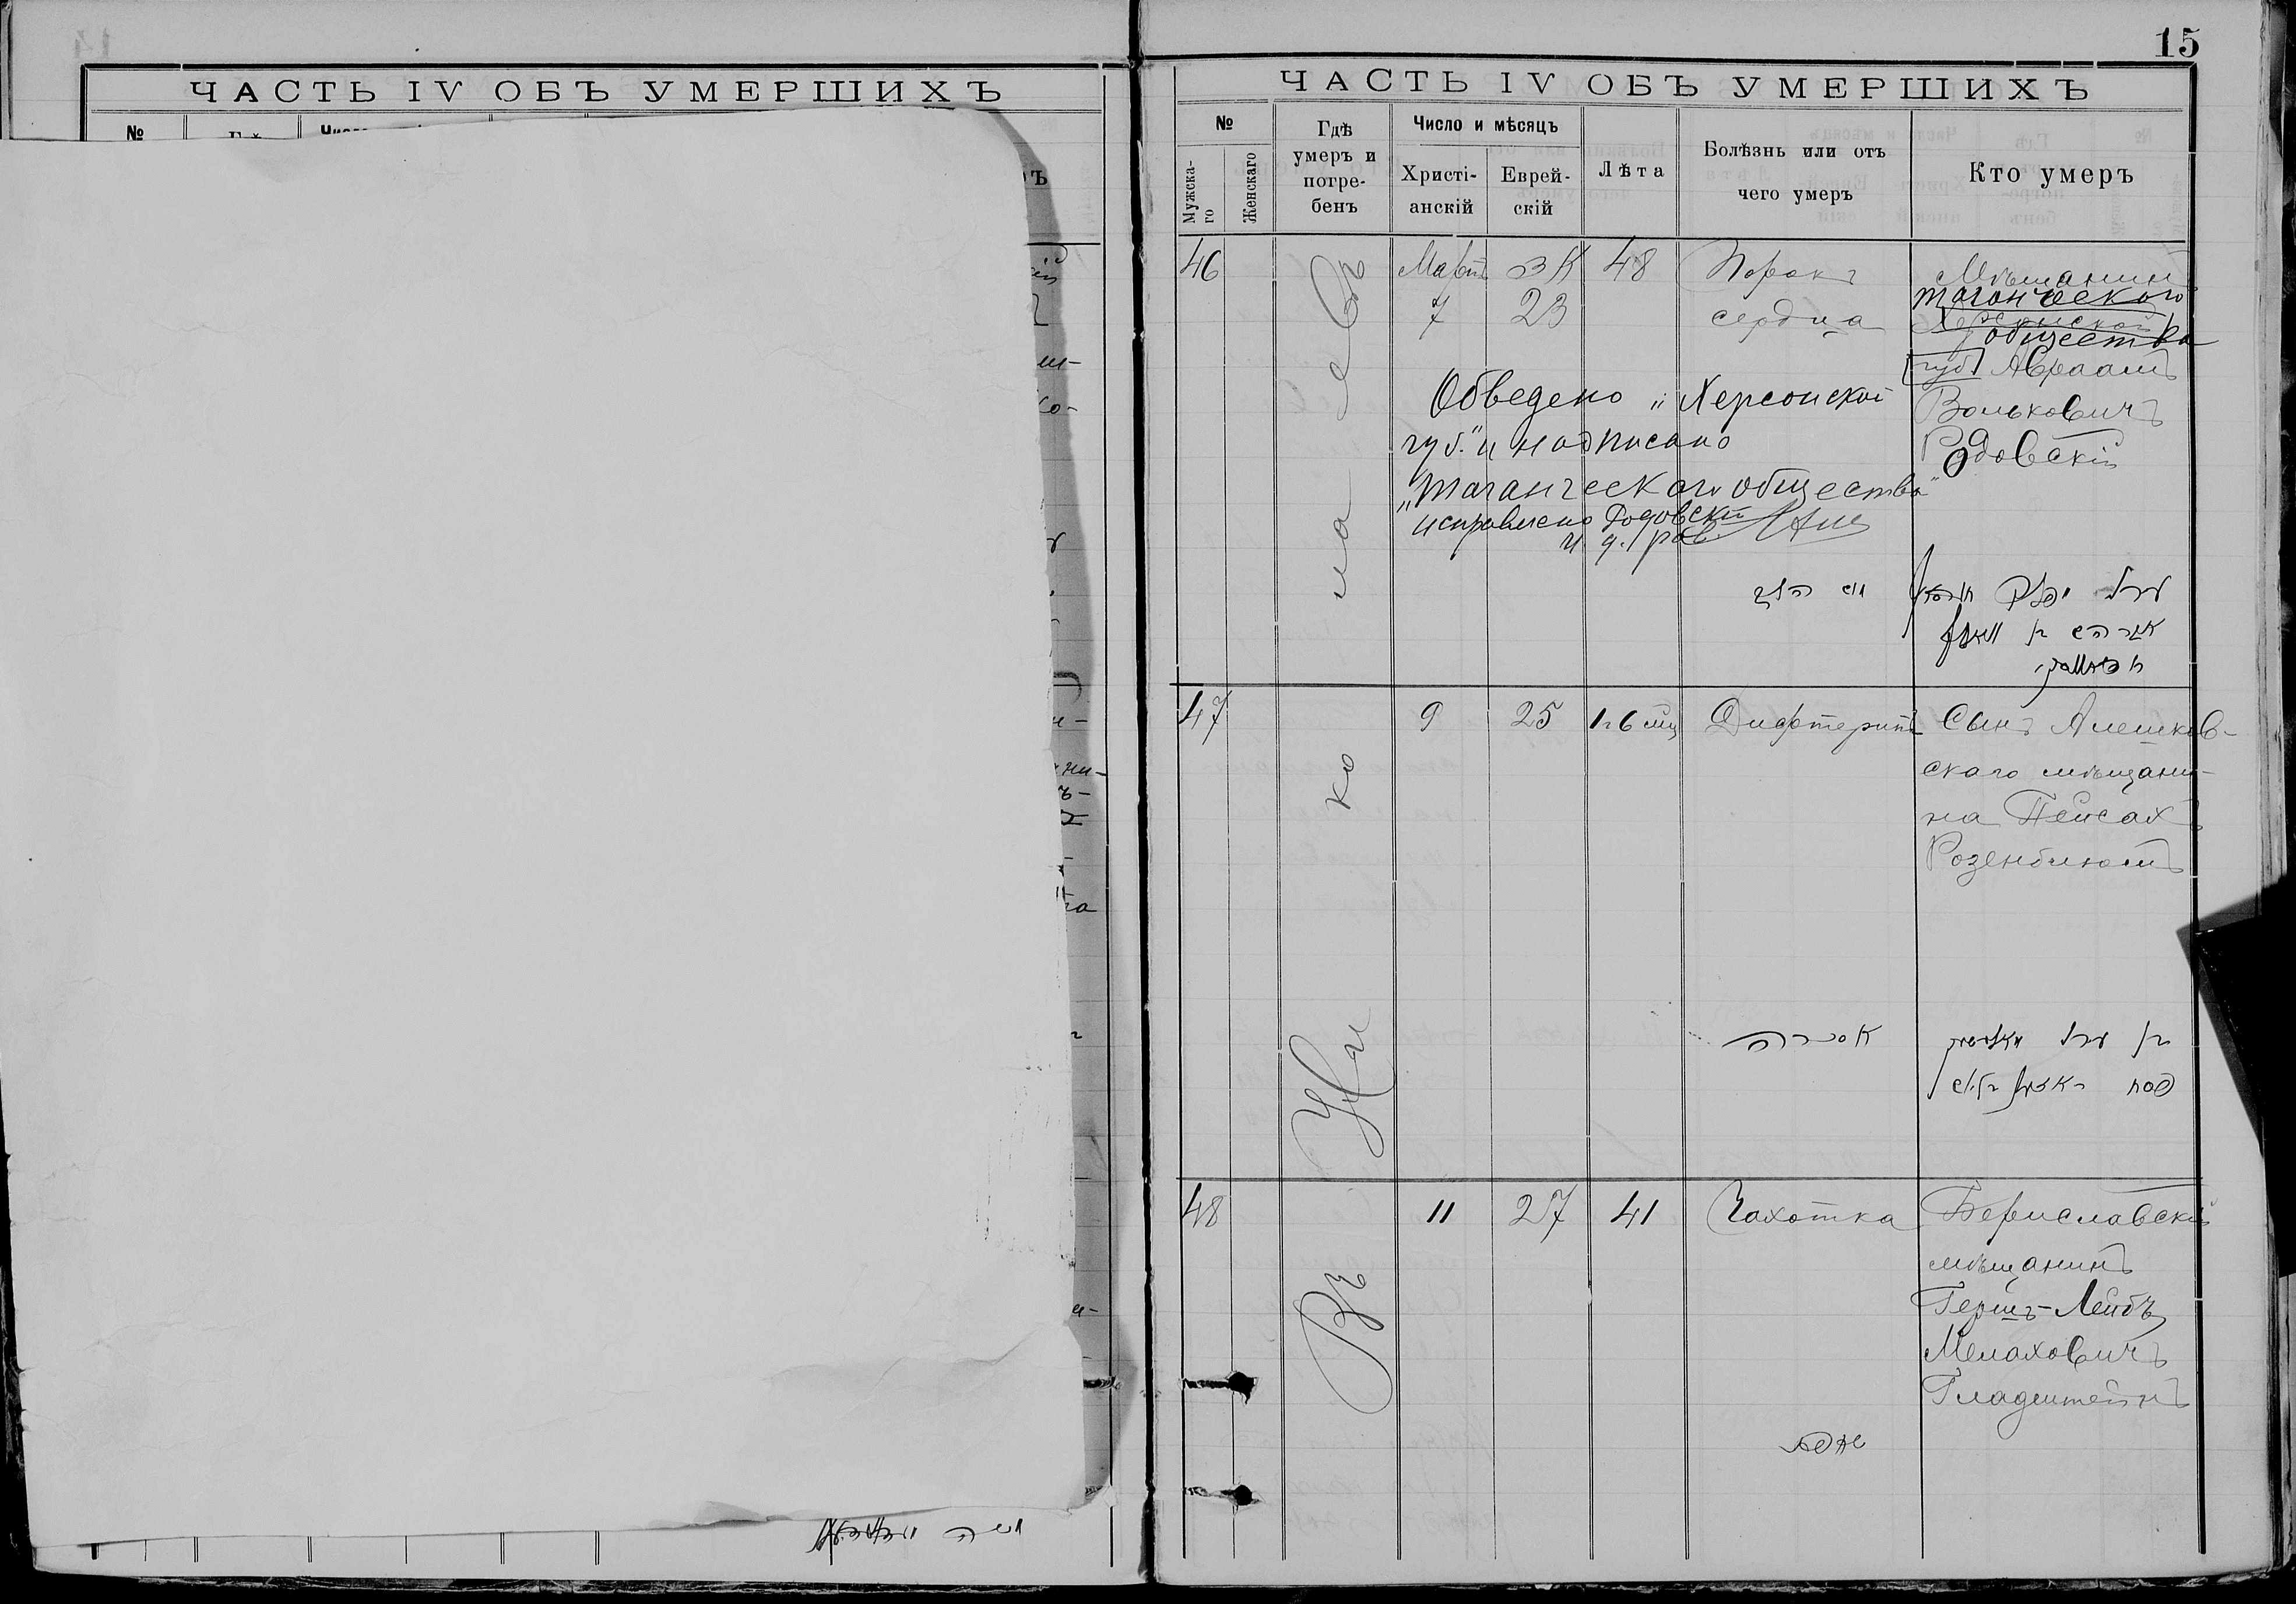 ЧАСТЬ IV ОБЪ УМЕРШИХЪ
№
15
ЧАСТЬ IV ОБЪ УМЕРШИХЪ
№
Мужска-
го
Женскаго
Гдѣ
умеръ и
погре-
бенъ
Число и мѣсяцъ
Христі-
анскій
Еврей-
скій
Лѣта
Болѣзнь или отъ
чего умеръ
Кто умеръ
46
Мартъ
7
23
48
Порокъ
сердца
Мѣщанинъ
таганческого
Херсонской
общества
губ. Авраамъ
Вольковичъ
Родовскій
Обведено „Херсонской
губ." и надписано
„таганческаго общества"
исправлено Родовскій
и. д. рав.
Въ Николаевѣ
47
9
25
1 г 6 мц
Дифтеритъ
Сынъ Алешков-
скаго мѣщани-
на Пейсахъ
Розенблюмъ
אסכרה
פסח
48
11
27
41
Чахотка
Бериславскій
мѣщанинъ
Гершъ-Лейбъ
Мелаховичъ
Гладштейнъ